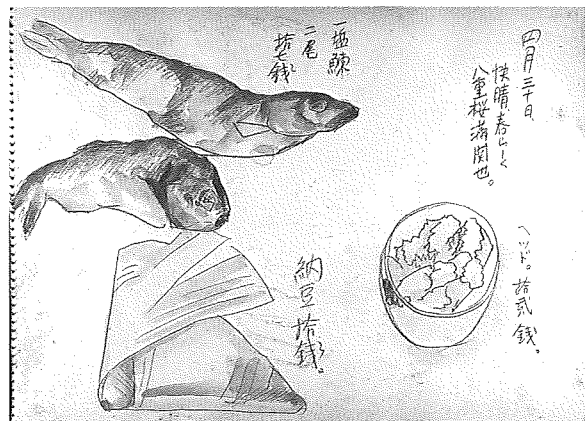 四月三十日、
快晴、春らしく
八重桜満開也。
ヘッド。拾弐銭。
一塩鰊
二尾
拾七銭
納豆拾銭。